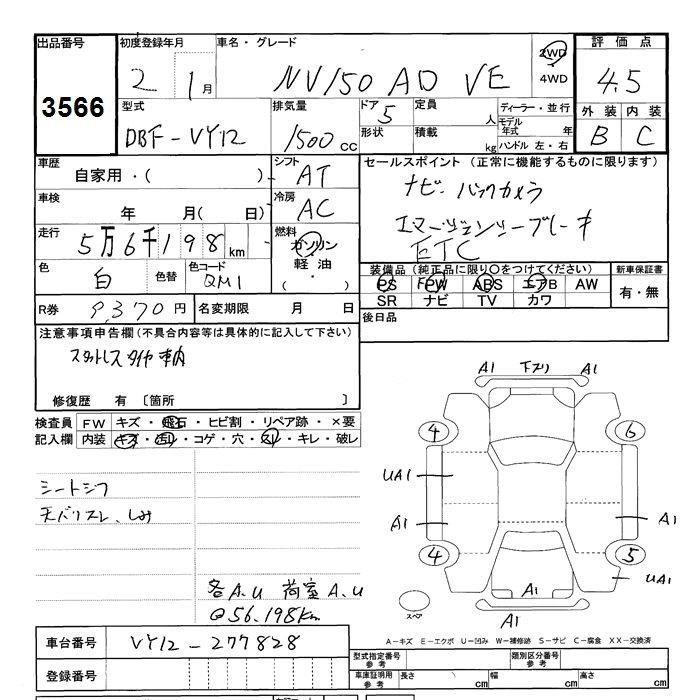 出品番号 初度登録年月 車名・グレード 2WD 評価点
3566 2 1月 NV150 AD VE 4WD 4.5
型式 排気量 ドア 定員 ディーラー・並行 外装 内装
DBF-VY12 1500cc 5 人 モデル年式 年 B C
形状 積載 kg ハンドル 左・右
車歴 シフト セールスポイント(正常に機能するものに限ります)
自家用・( ) AT ナビ・バックカメラ
車検 冷房
年 月( 日) AC エマージェンシーブレーキ
走行 燃料 ETC
5万6千198km ガソリン
軽油・
( )
色 色替 色コード 装備品(純正品に限り○をつけてください) 新車保証書
白 QM1 PS PW ABS エアB AW 有・無
SR ナビ TV カワ
R券 9,370円 名変期限 月 日 後日品
注意事項申告欄(不具合内容等は具体的に記入して下さい)
スタットレスタイヤ車輌
修復歴 有 〔箇所 〕
検査員 FW キズ・飛石・ヒビ割・リペア跡・×要
記入欄 内装 キズ・汚レ・コゲ・穴・スレ・キレ・破レ
シートシワ
天バリスレ、しみ
各A.U 荷室A.U
@56.198km
A1 下スリ A1
4 6
UA1
A1 A1
4 5
UA1
A1
スペア A1
A-キズ E-エクボ U-凹み W-補修跡 S-サビ C-腐食 XX-交換済
車台番号 VY12-277828
型式指定番号 参考 類別区分番号 参考
登録番号 車庫証明用 参考 長さ cm 幅 cm 高さ cm